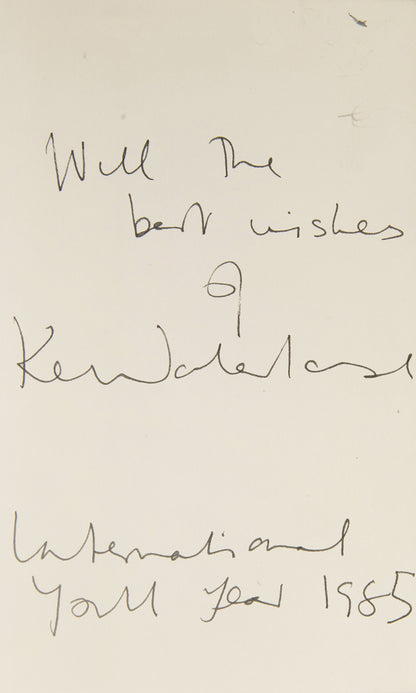 With the
best wishes
of
Ken Waterhouse
International
Youth Year 1985